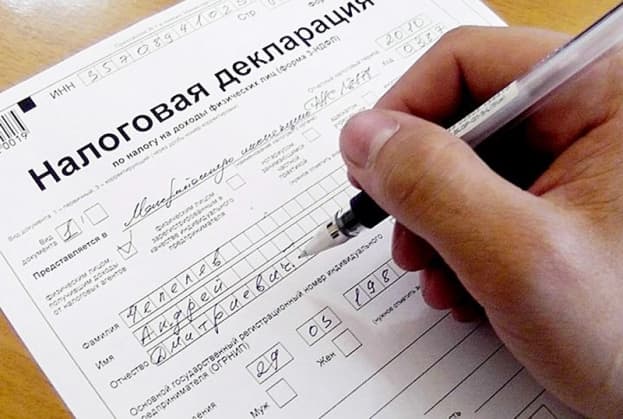 ИНН 3570894102
Стр
Налоговая декларация
по налогу на доходы физических лиц (форма 3-НДФЛ)
2010
0387
Вид
документа 1
Представляется в
физическим лицом
получившим доходы
от налоговых агентов
физическим лицом
зарегистрированным в
качестве индивидуального
предпринимателя
нотариусом
занимающимся
практикой
адвокатом
Фамилия Чепелев
Имя Андрей
Отчество Дмитриевич
Основной государственный регистрационный номер индивидуального
предпринимателя (ОГРНИП)
29 03 198
(нужное отметить
Муж
Жен